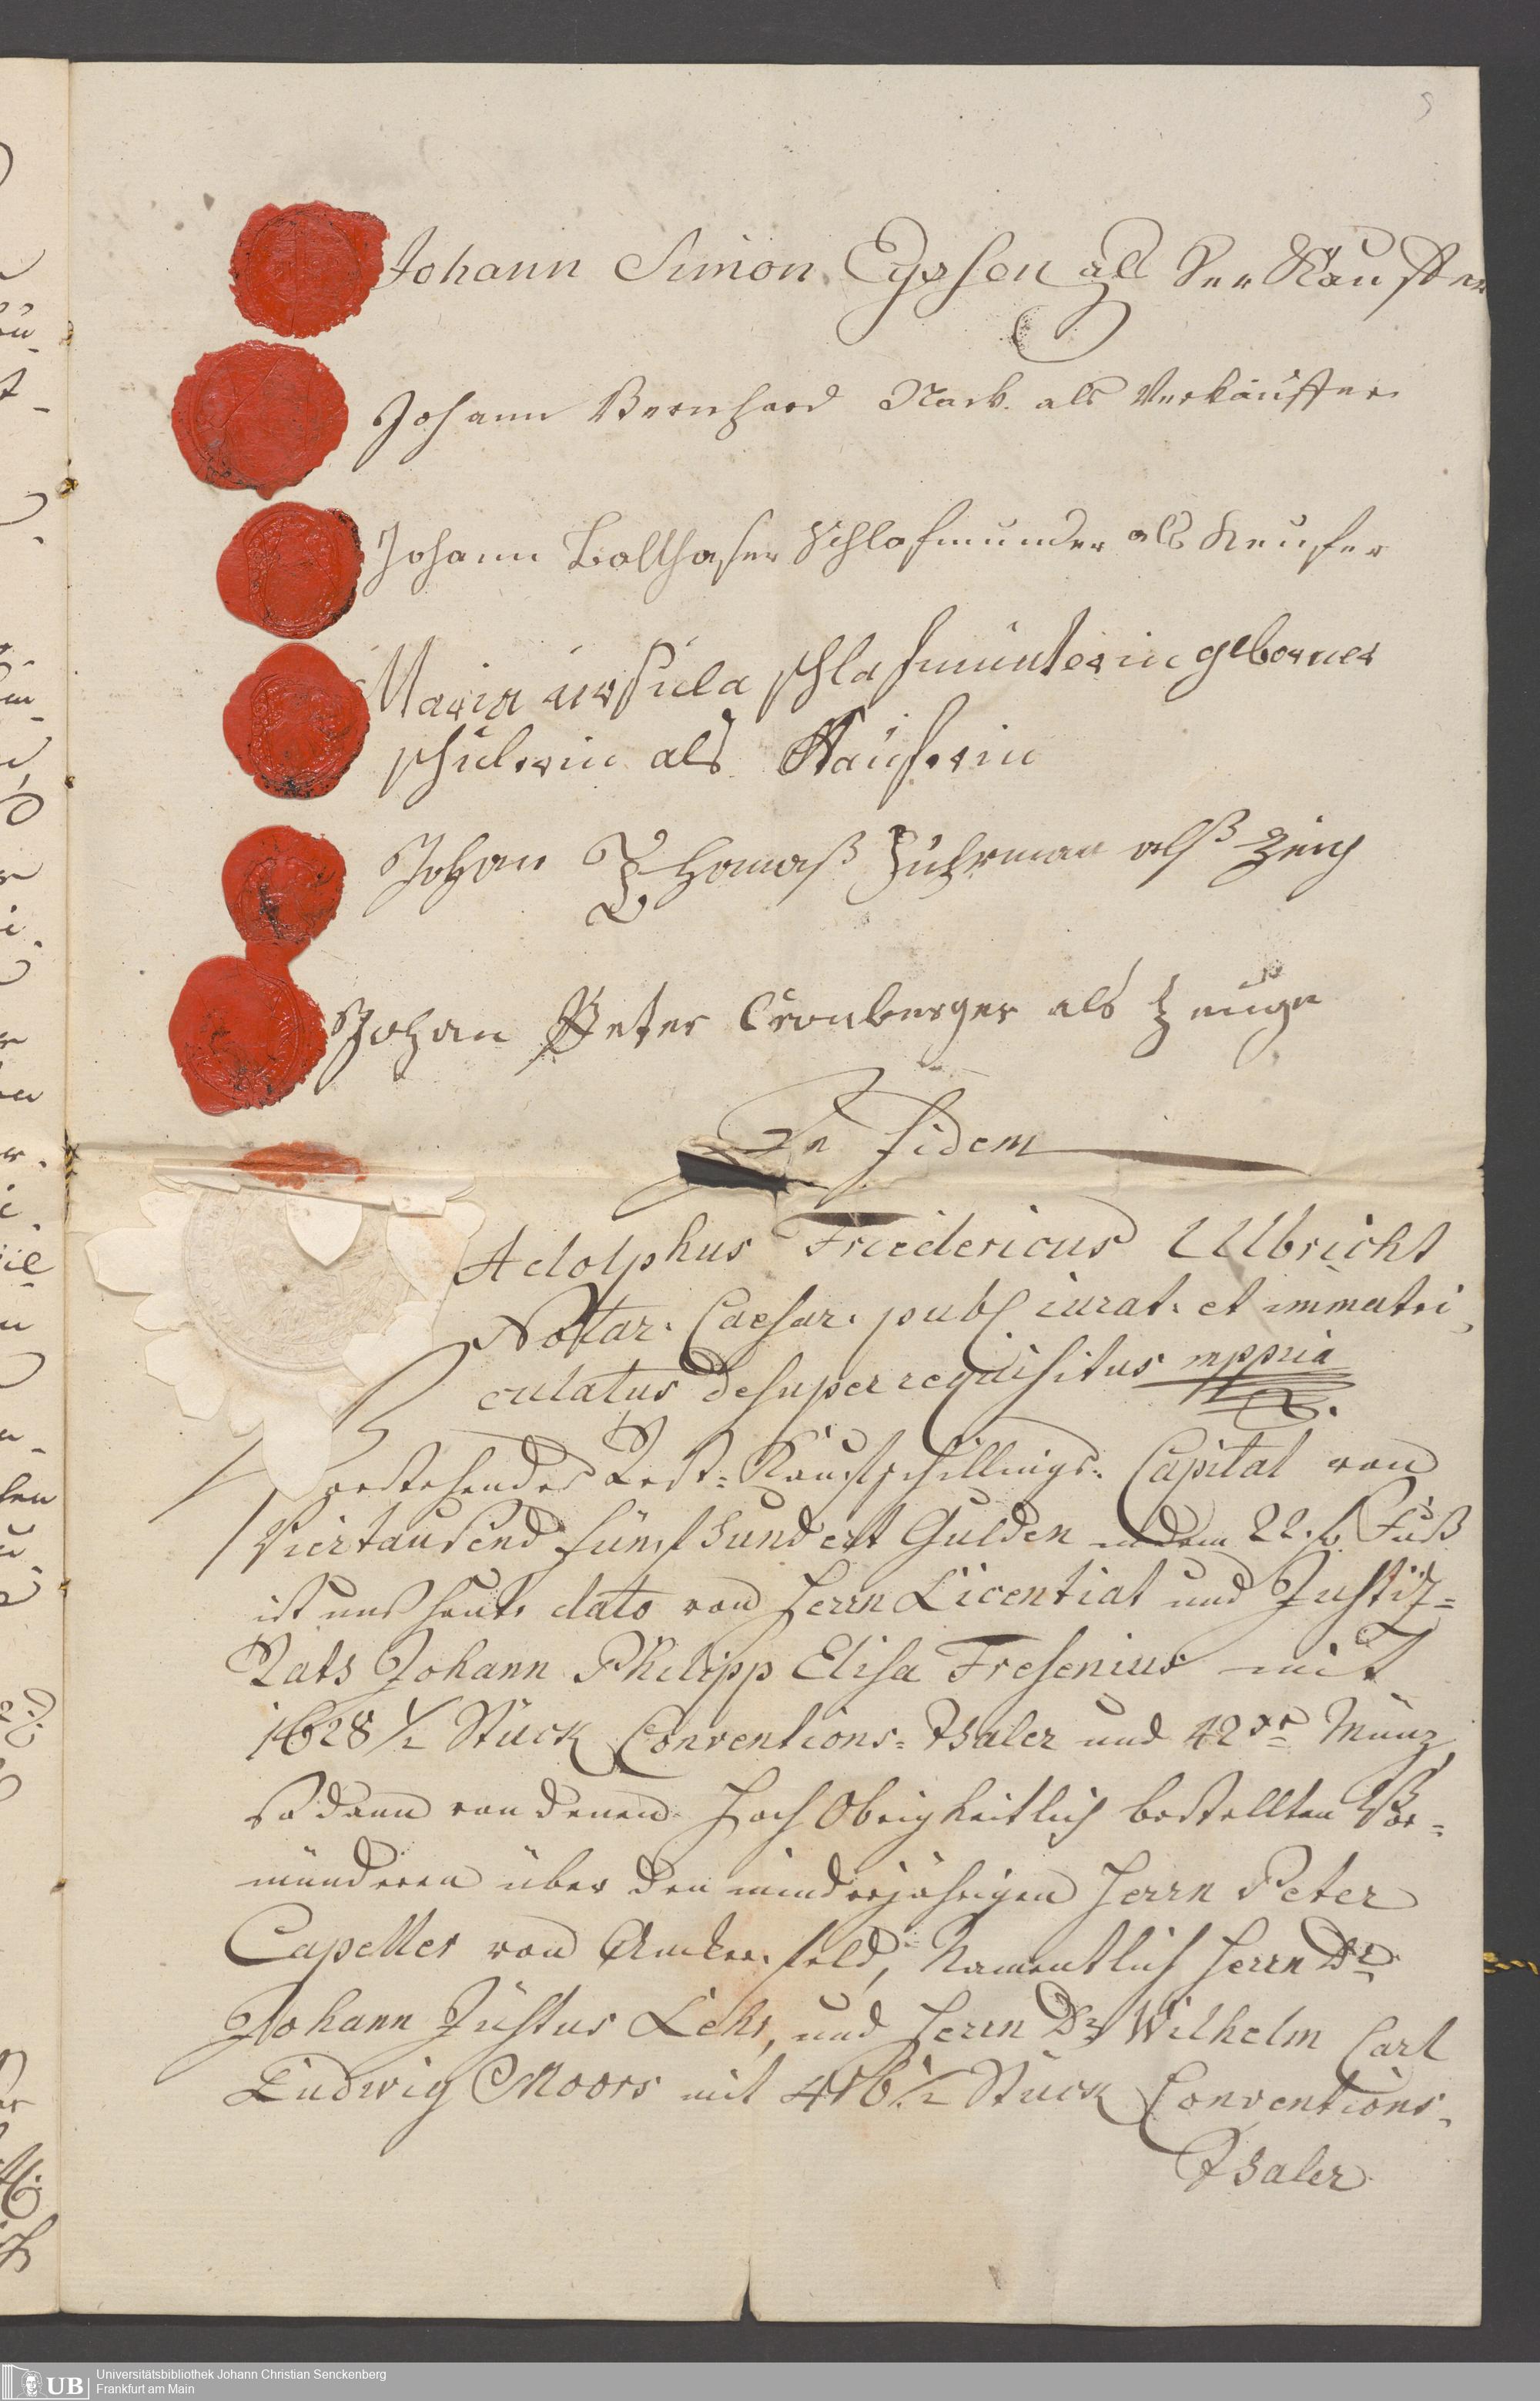 Johann Simon Eyssen als Ver Kauffer
Johann Bernhard Nack. als Verkäuffer
Johann Balthaser Schlafmünder als Keufer
Maria ursula schlafmünterin geborner
schulerin als Käuferin
Johan Thomaß Fuhrman alß Zeug
Johan Peter Cronberger als Zeuge
In fidem
Adolphus Friedericus Ulbricht
Notar. Caesar. publ iurat. et immatri,
culatus desuper requisitus mppria
Vorstehender Rest-Kaufschillings-Capital von
Viertausend fünfhundert Gulden in dem 22. f. Fuß
ist uns heute dato von Herrn Licentiat und Justiz-
Rats Johann Philipp Elisa Fresenius mit
1628 1/2 Stück Conventions-Thaler und 42 xr Münz,
sodann von denen Hoch Obrigkeitlich bestellten Vor-
münderen über den minderjährigen Herrn Peter
Capeller von feld, Namentlich Herrn Dr
Johann Justus Lehr, und Herrn Dr Wilhelm Carl
Ludwig Moors mit 416 1/2 Stück Conventions-
Thaler
Universitätsbibliothek Johann Christian Senckenberg
Frankfurt am Main
UB